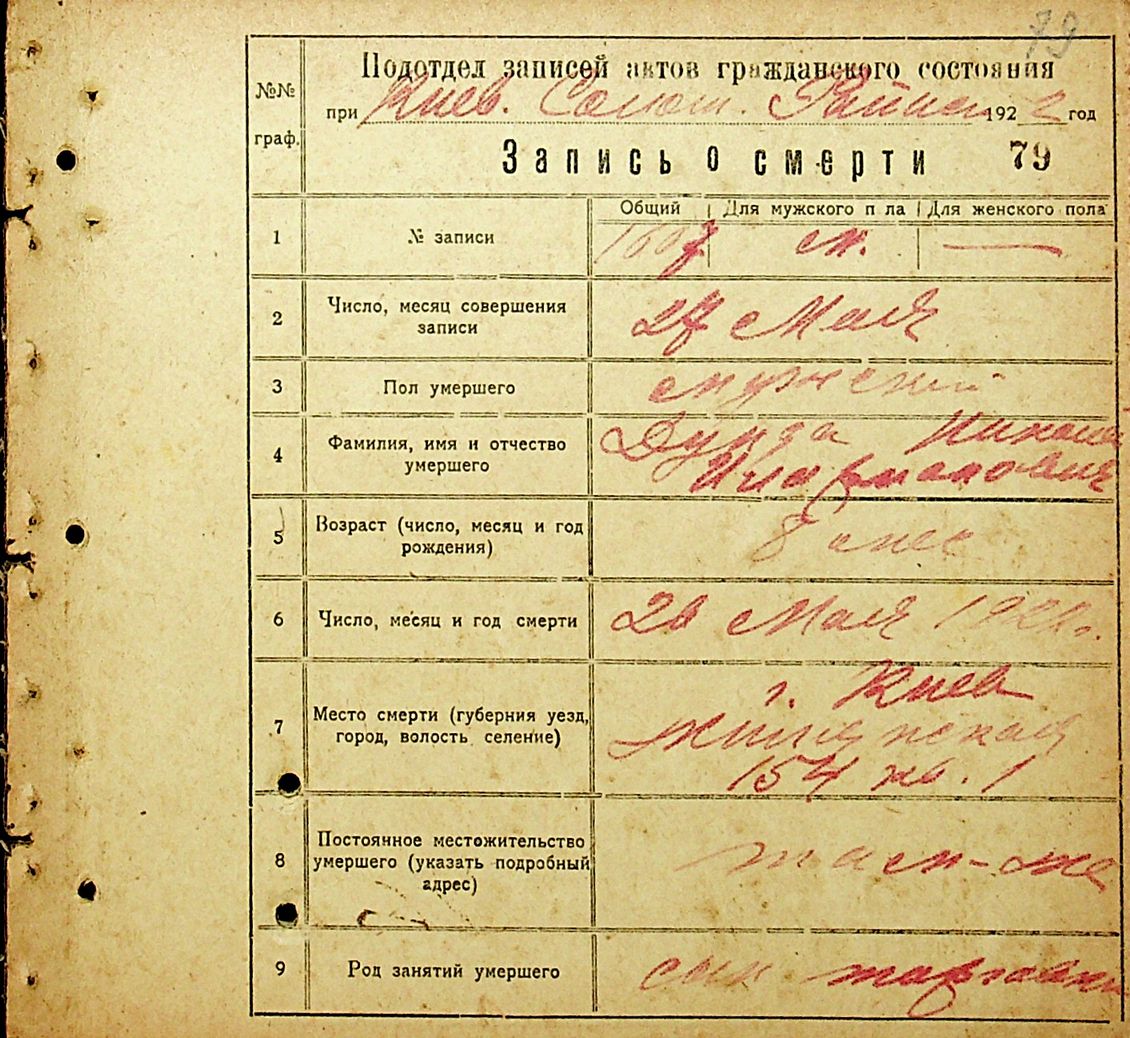 79
Подотдел записей актов гражданского состояния
№№ граф.
при Киев. Солом. 1922 год
Запись о смерти 79
Общий Для мужского п ла Для женского пола
1 № записи м. —
2 Число, месяц совершения записи 27 Мая
3 Пол умершего мужский
4 Фамилия, имя и отчество умершего Николай
5 Возраст (число, месяц и год рождения) 8 мес
6 Число, месяц и год смерти 26 Мая 1922г.
7 Место смерти (губерния уезд, город, волость селение) г. Киев
Жилянская
154 кв. 1
8 Постоянное местожительство умершего (указать подробный адрес) там-же
9 Род занятий умершего сын торговки